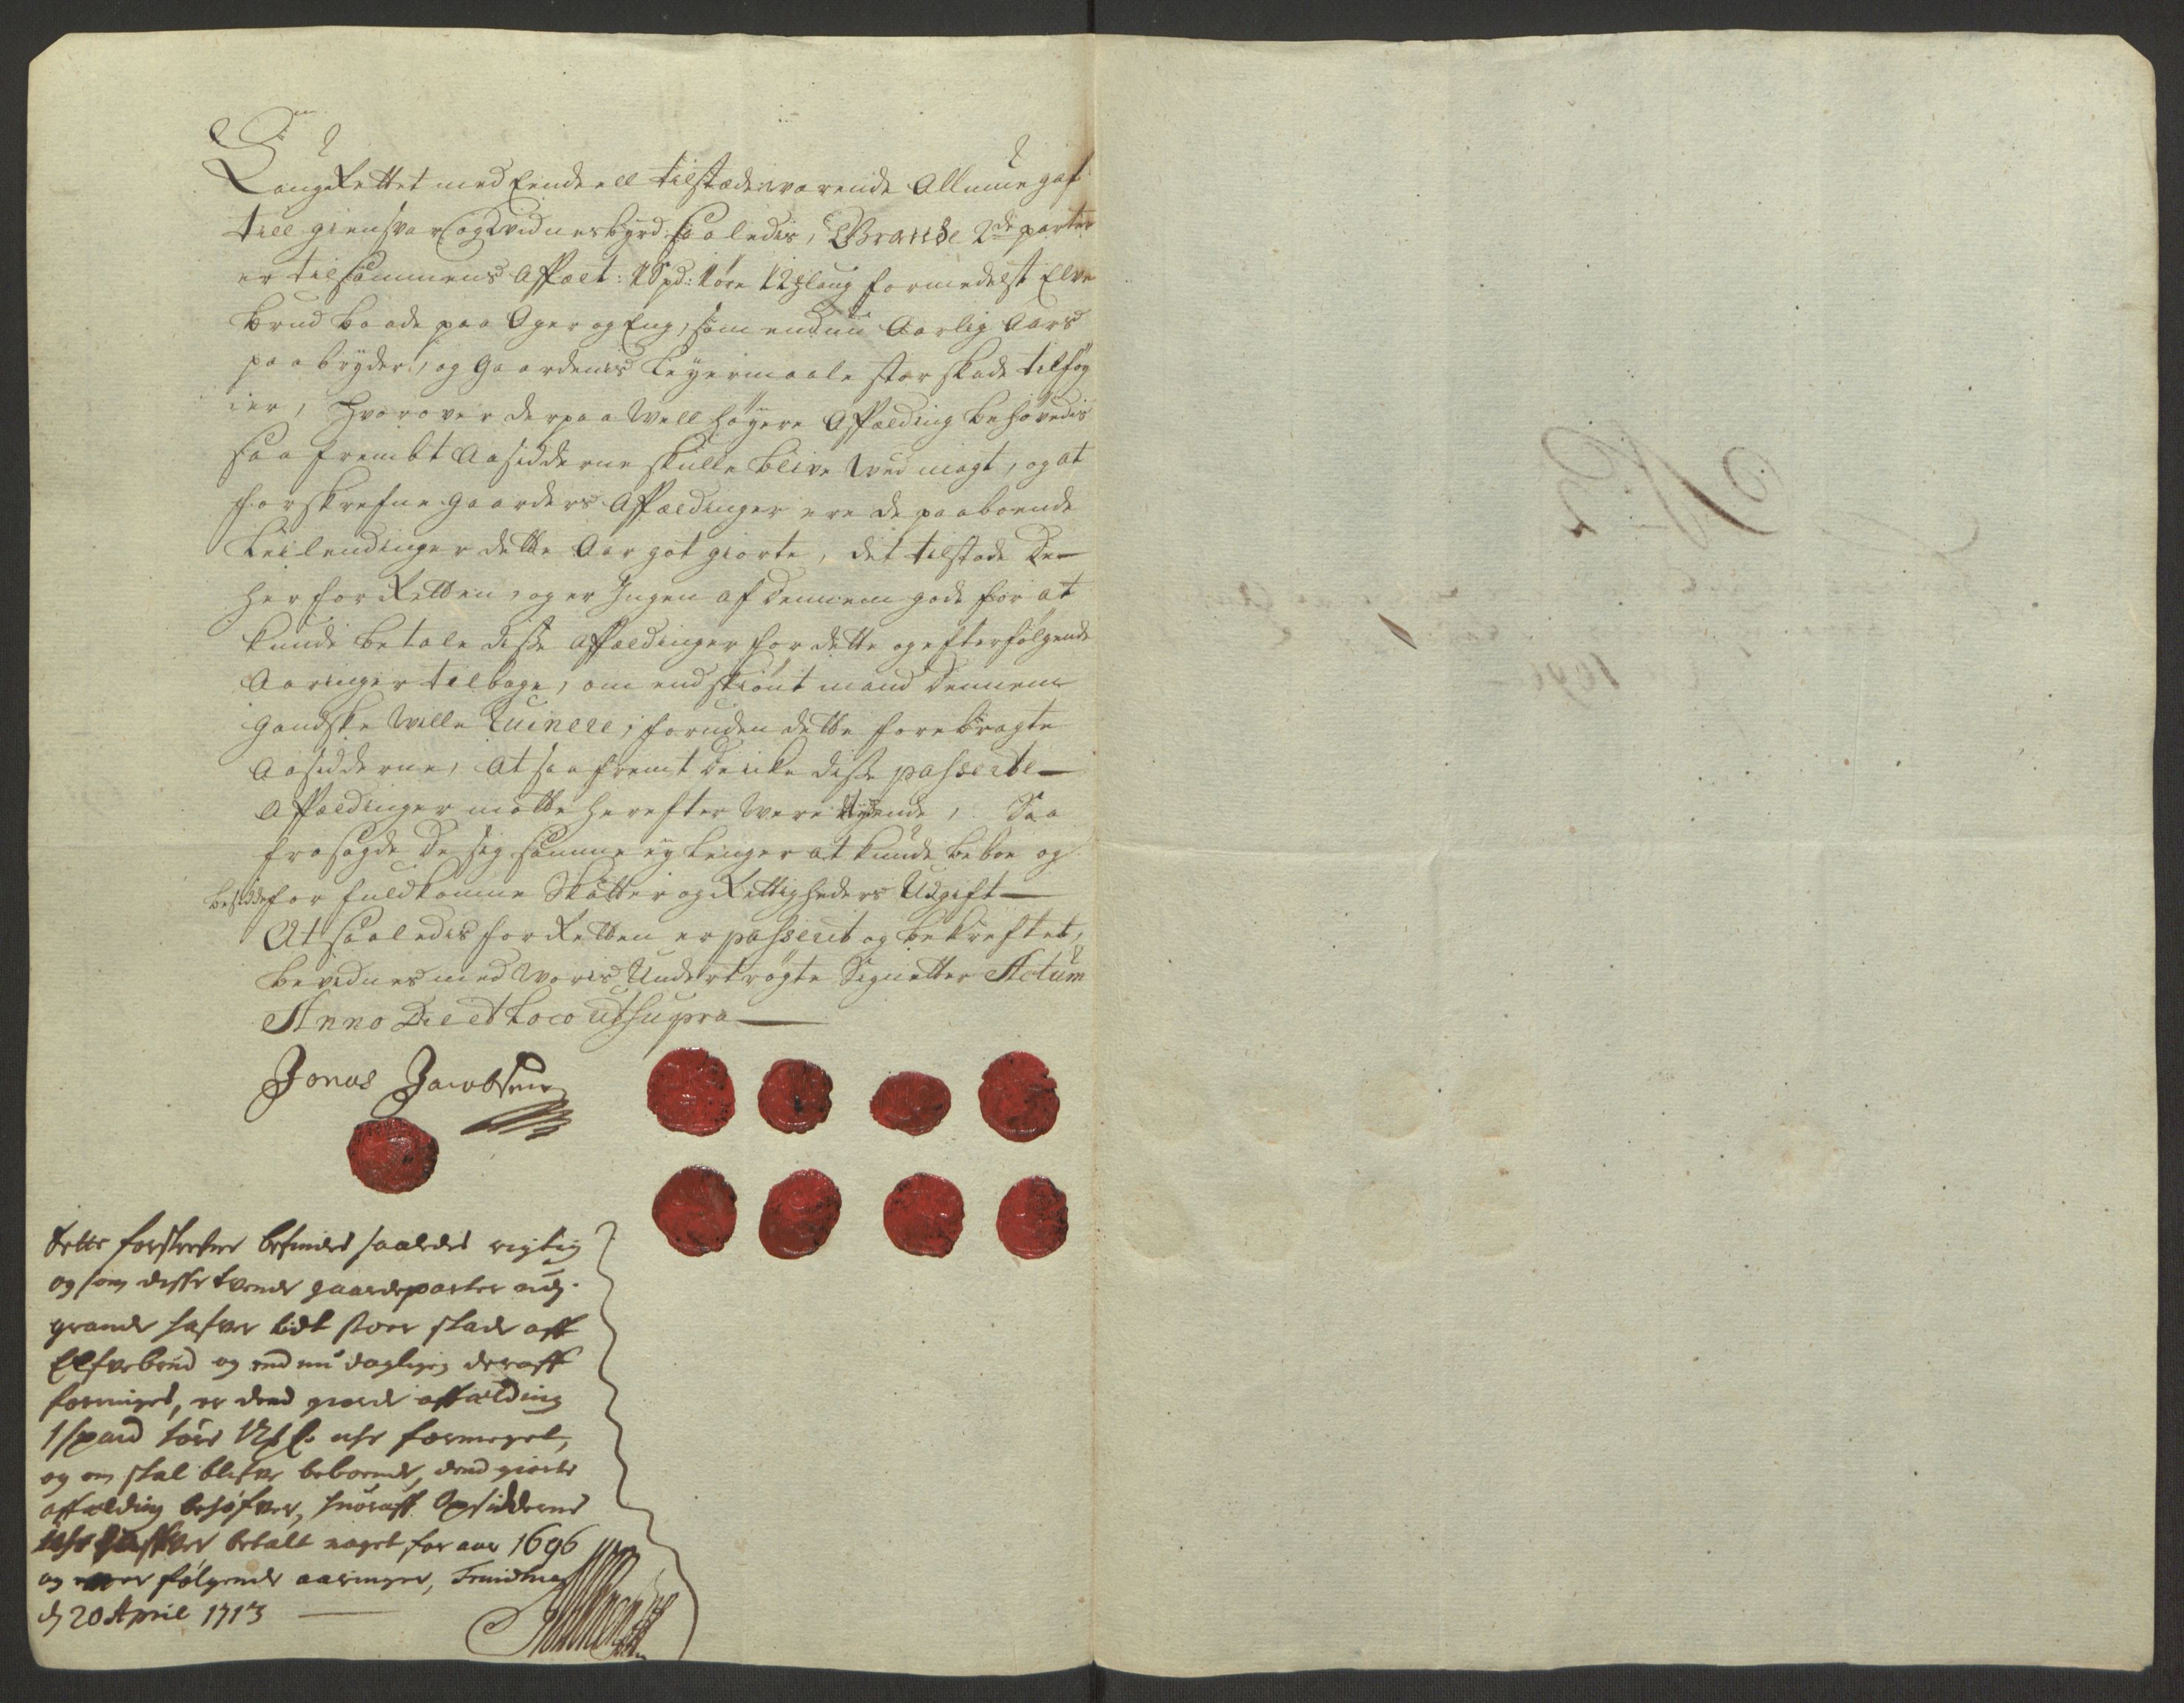 Laugrettet med Eendeell tilstæde værende Allmue gaf
till giensvar og Vidnesbyrd saaledis, Brande 2de parter
er tilsammens Affælt: 1 Spd: 1 øre 12 Mlaug formedelst Elve
brud baade paa Ager og Eng, som endnu Aarlig Aars
paabryder, og Gaardenes Leyermaale stor skade tilføy
ier, hvorover derpaa Well høyere Affælding behøvedis
saa frembt Aasidderne skulle blive Wed magt, og at
forskrefne gaarders Affældinger ere de paaboende
Leilendinger dette Aar got giorte, det tilstode De
her for Retten, og er Ingen af dennem gode for at
kunde betale disse Affældinger for dette og efterfølgende
Aaringer tilbage, om end skiønt mand Dennem
gandske Wille Ruinere; foruden dette forebragte
Aasidderne, At saa fremt De icke disse passerte
Affældinger motte herefter Were Nydende, Saa
frasagde De sig samme ey lenger at kunde beboe og
besidde for fuldkomne Skatter og Rettigheders Udgift
At saaledis for Retten er passerit og bekreftet,
bevidnes med Woris Undertrøgte Signetter Actum
Anno Die et Loco ut supra
Jonas Jacobsen
Dette forskrefne befindes saaledes rigtig
og som disse tvende gaardeparter
grande hafver lidt stoer skade aff
Elfvebrud og end nu dagligen deraff
formiges, er dend giorde affælding
1 spand 1 øre 12 icke formeget,
og om skal blifve beboende, dend giorte
affælding behøfver, huoraff Opsidderne
icke hafver betalt noget for aar 1696
og følgende aaringer,
d 20 April 1713
No
1696